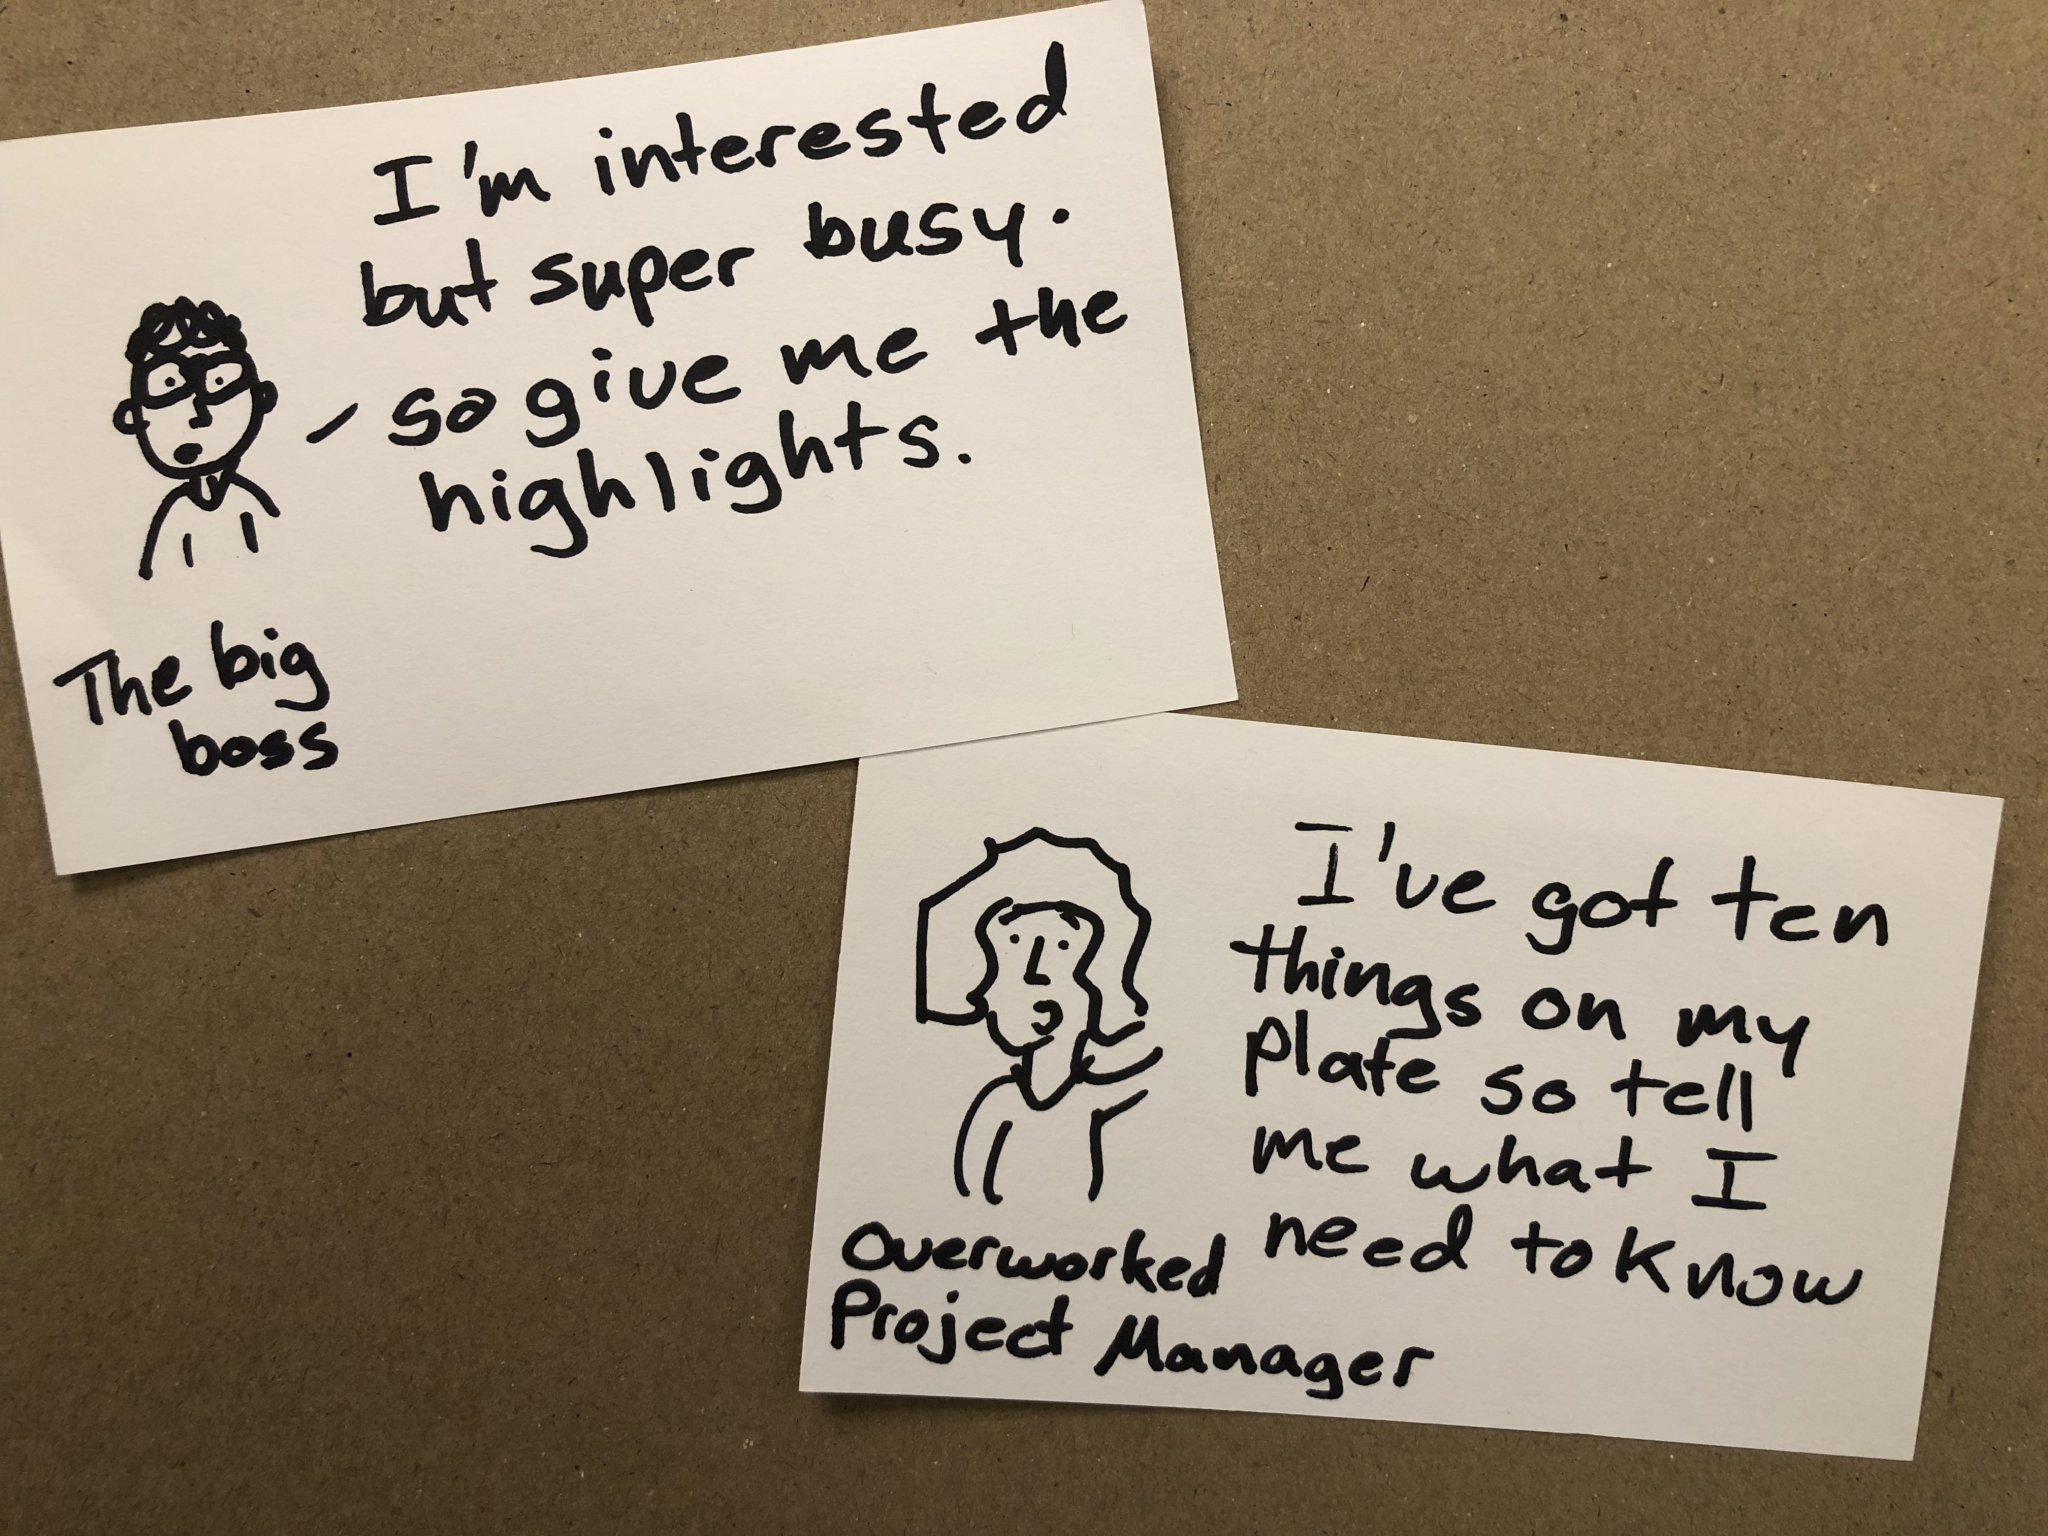 I'm interested
but super busy.
so give me the
highlights.
The big
boss
I've got ten
things on my
plate so tell
me what I
need to know
Overworked
Project Manager